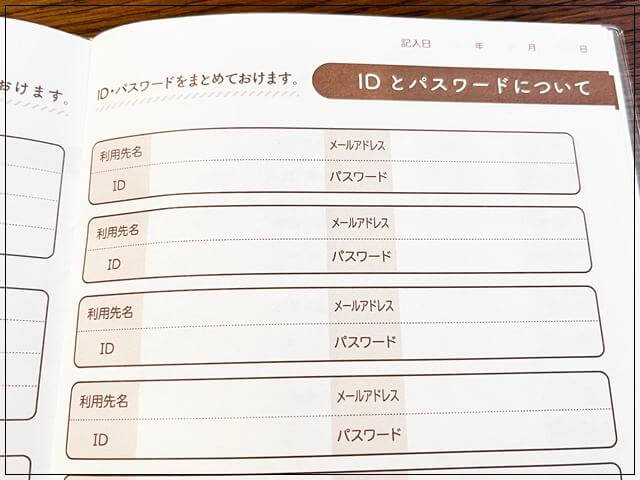 おけます。
記入日 年 月 日
ID・パスワードをまとめておけます。
IDとパスワードについて
利用先名 メールアドレス
ID パスワード
利用先名 メールアドレス
ID パスワード
利用先名 メールアドレス
ID パスワード
利用先名 メールアドレス
ID パスワード